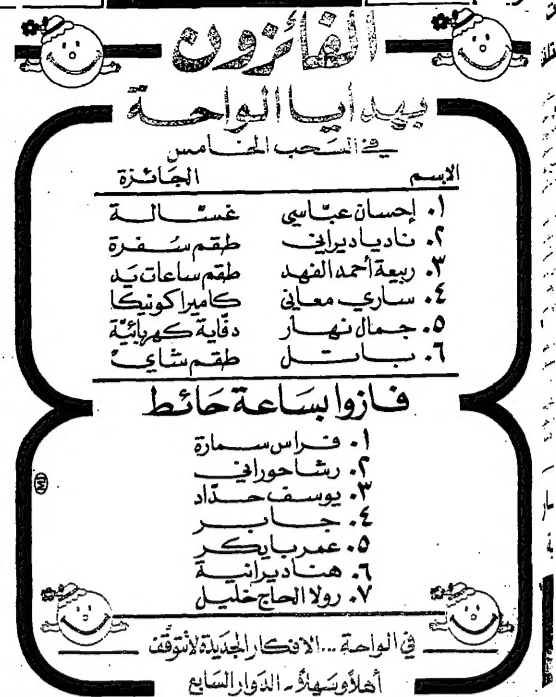 الفائزون
بهدايا الواحة
في السحب الخامس
الاسم الجائزة
١. إحسان عباسي غسالة
٢. ناديا ديراني طقم سفرة
٣. ربيعة أحمد الفهد طقم ساعات يد
٤. ساري معاني كاميرا كونيكا
٥. جمال نهار دفاية كهربائية
٦. باتل طقم شاي
فازوا بساعة حائط
١. فراس سمارة
٢. رشا حوراني
٣. يوسف حداد
٤. جابر
٥. عمر بايكر
٦. هنا ديرانية
٧. رولا الحاج خليل
في الواحة... الأفكار الجديدة لا تتوقف
أهلاً وسهلاً - الدوار السابع